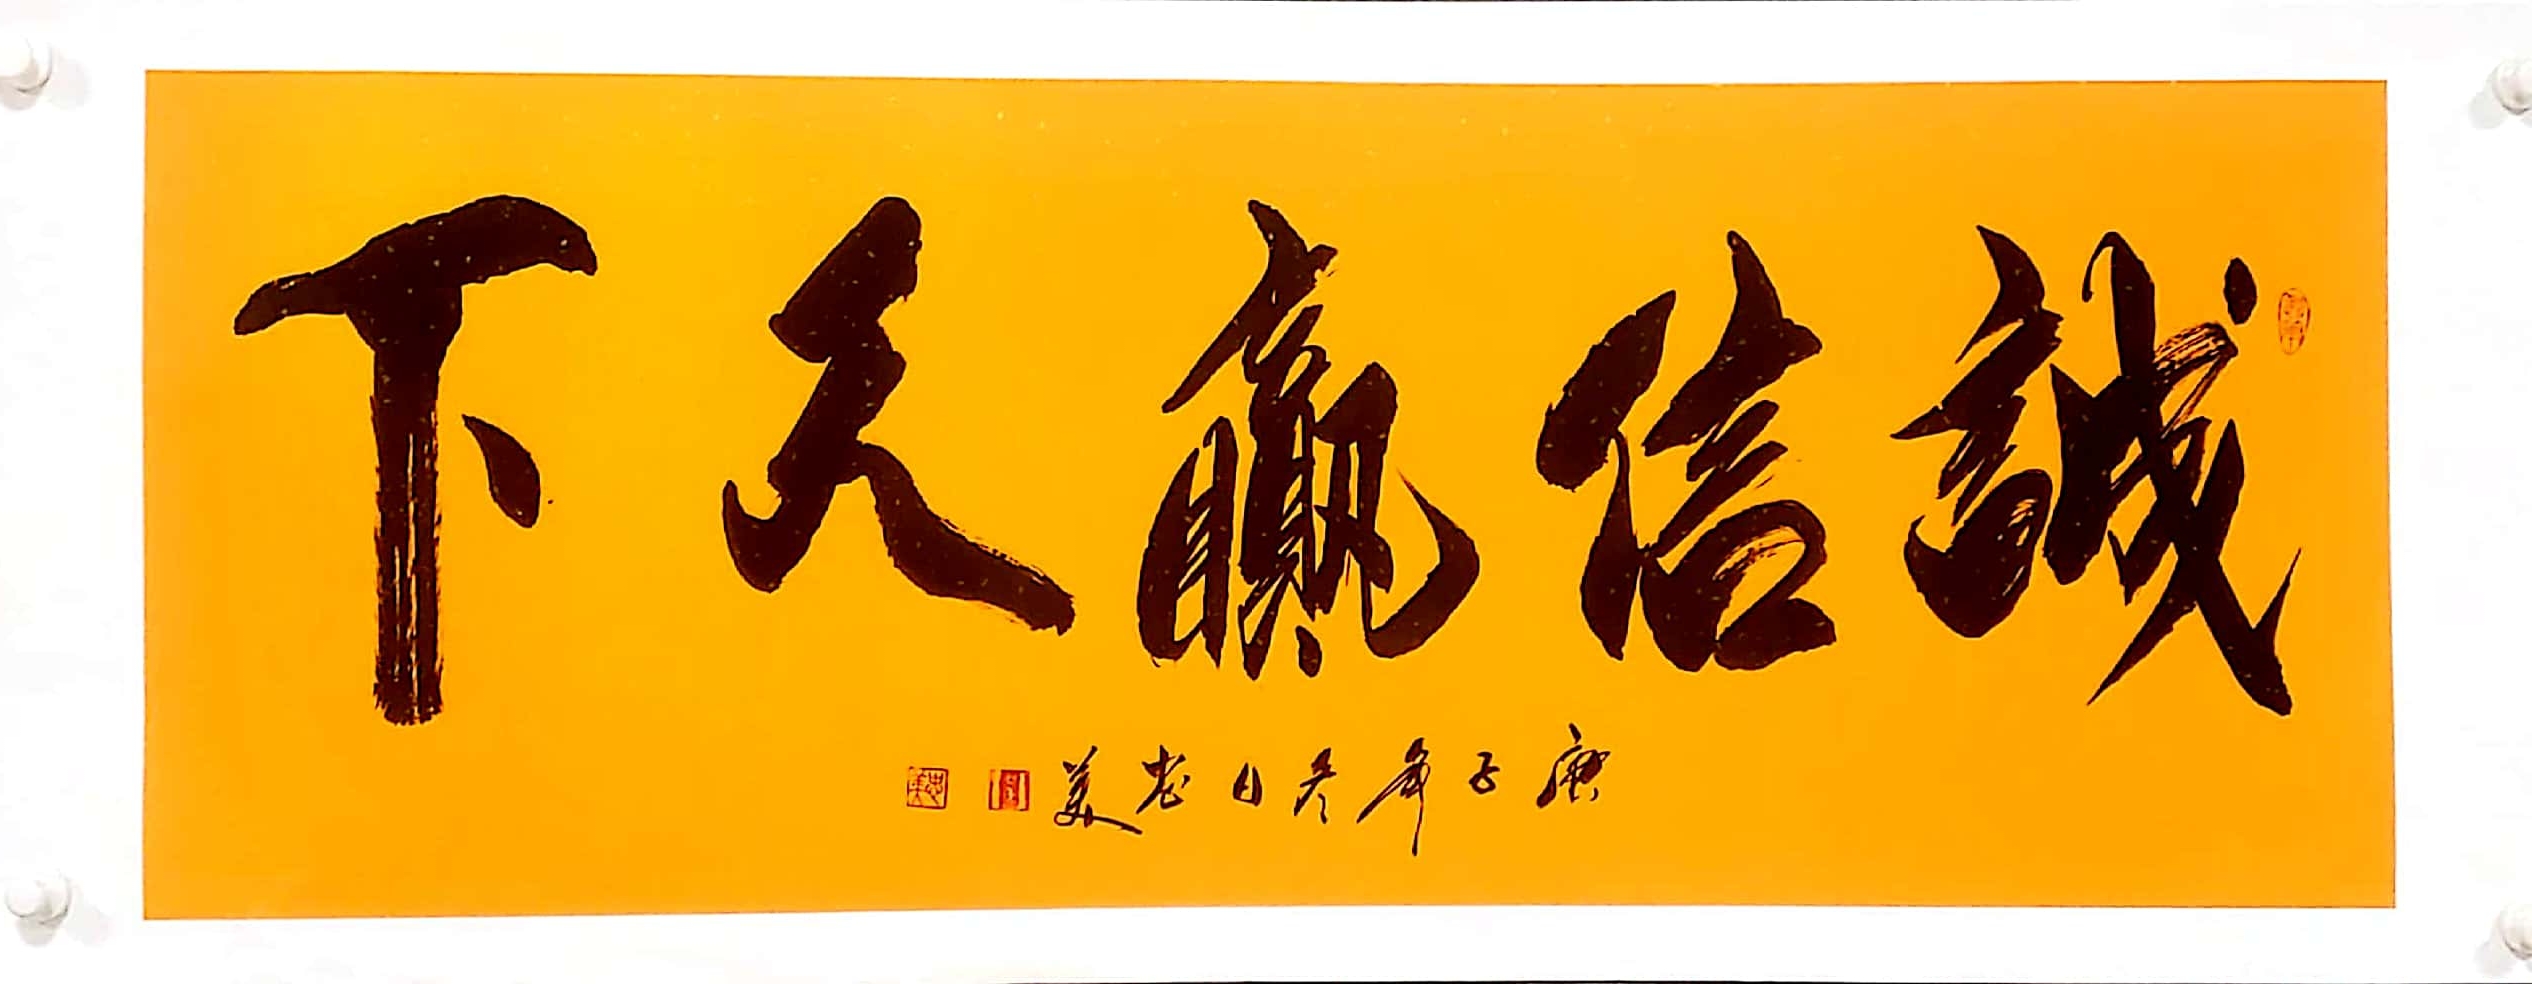 誠信贏天下
庚子年冬日美